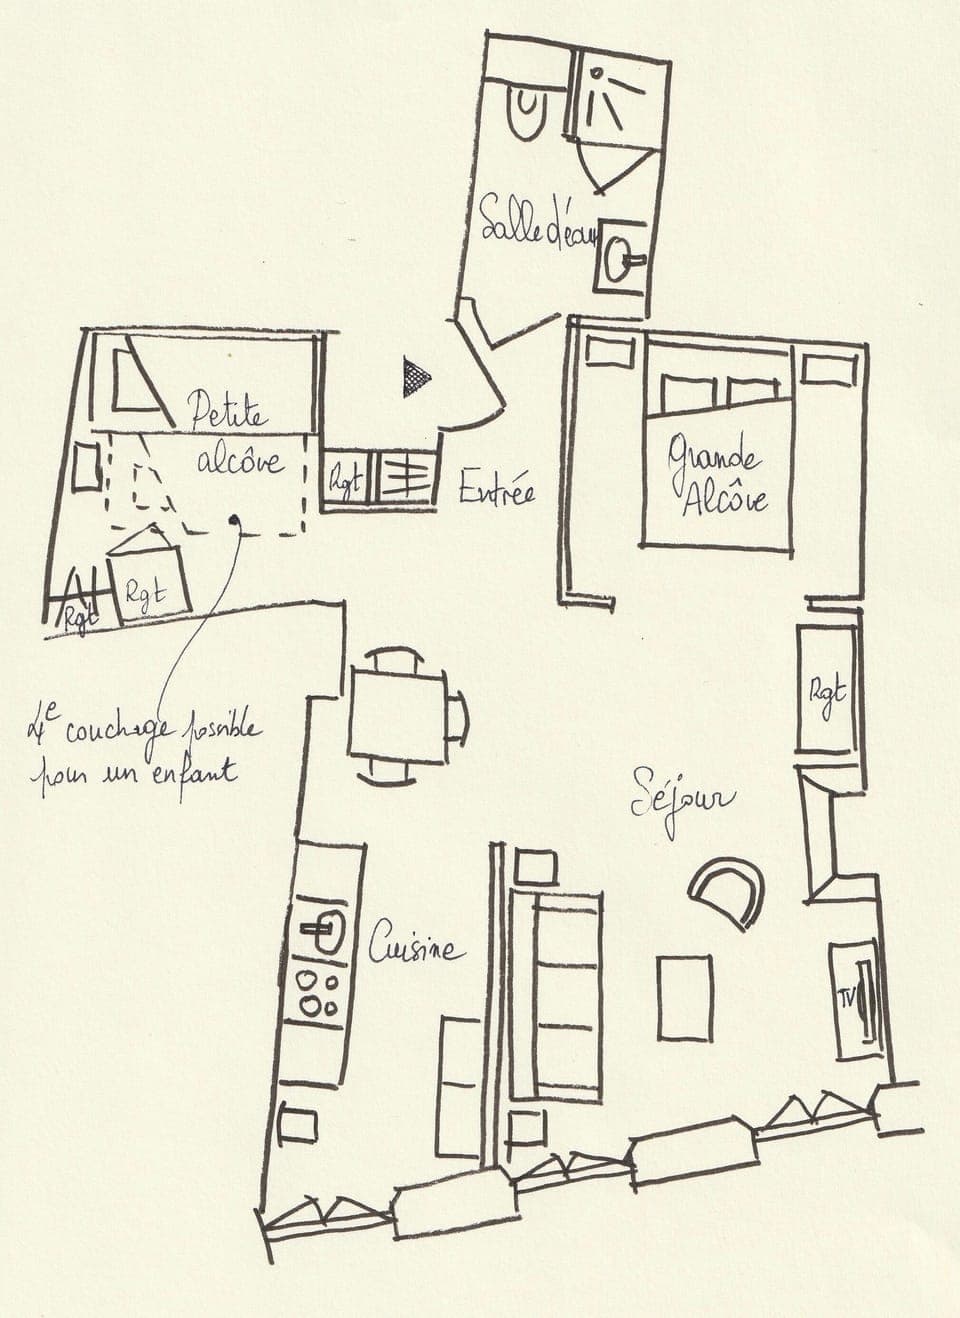 Salle d'eau
Petite
alcôve
Rgt
Entrée
Grande
Alcôve
Rgt
Rgt
4e couchage possible
pour un enfant
Rgt
Séjour
Cuisine
TV